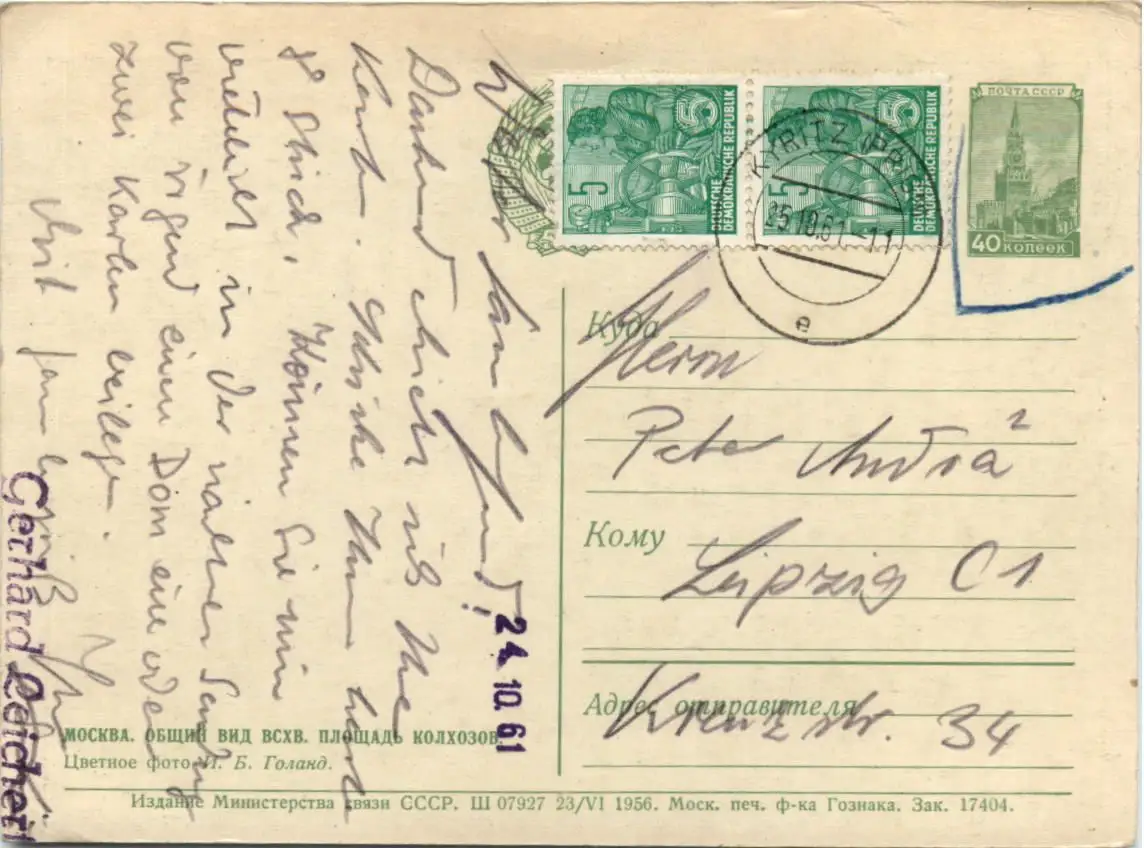 ПОЧТА СССР
40 КОПЕЕК
5 5
DEUTSCHE
DEMOKRATISCHE REPUBLIK
5 5
DEUTSCHE
DEMOKRATISCHE REPUBLIK
KYRITZ
25.10.61-11
e
24.10.61
Dankend erhielt ich Ihre
Karte. Schicke Ihnen heute
8 Stück, Können Sie mir
vielleicht in der nächsten Sendung
von irgend einem Dom eine oder
zwei Karten beilegen.
Mit Gruß Ihr
Gerhard
Куда
Herrn
Peter André
Кому
Leipzig C1
Адрес отправителя
Kreuzstr. 34
МОСКВА. ОБЩИЙ ВИД ВСХВ. ПЛОЩАДЬ КОЛХОЗОВ.
Цветное фото И. Б. Голанд.
Издание Министерства связи СССР. Ш 07927 23/VI 1956. Моск. печ. ф-ка Гознака. Зак. 17404.